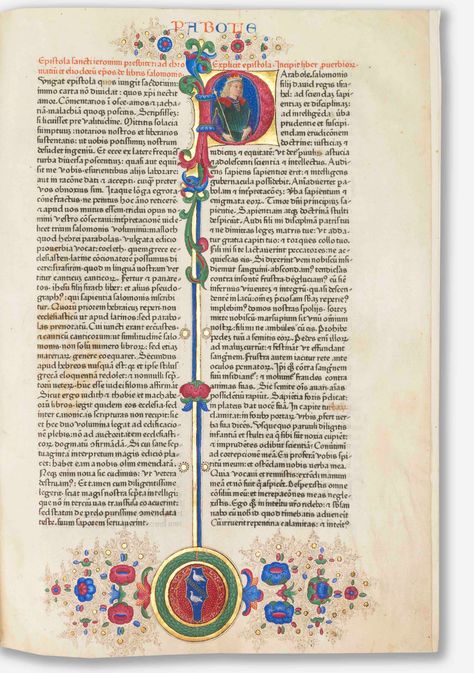 PABOLE
Epistola sancti ieronimi presbiteri ad chro
matiu et eliodoru epos de libris salomonis
Iungat epistola quos iungit sacerdotium:
immo carta no diuidat: quos xpi nectit
amor. Cometarios i osee. amos
Scripsisse:
si licuisset pre valitudine. Mittitis solacia
sumptuum: notarios nostros et librarios
sustentatis: ut uobis potissimum nostrum
desudet ingeniu. Et ecce ex latere freques
turba diuersa poscentium: quasi aut equu
sit me vobis esurientibus aliis laborare:
aut in racione dati et accepti. cuiq preter
vos obnoxius sim. Itaq loga egrota
cione fractus: ne penitus hoc ano reticere
et apud vos mutus essem: tridui opus no
mini vestro consecraui: interpretacione videlicet
trium salomonis voluminu: masloth
quod hebrei parabolas. vulgata edicio
prouerbia vocat: coeleth. quem grece ecclesiasten
latine concionatore possumus dicere:
sirasirim. quod in lingua nostram vertitur
canticu canticoru. Fertur et panaretos.
ihu filii sirach liber: et alius pseudographus:
qui sapientia salomonis inscribitur.
Quoru priorem hebraicu reperi: non
ecclesiasticu ut apud latinos: sed parabolas
prenotatu. Cui iuncti erant ecclesiastes
et canticu canticoru: ut similitudine salomonis
non solu numero librorum: sed etiam
materiaru genere coequaret. Secundus
apud hebreos nusqua est: quia et ipse stylus
greca eloquentia redolet: et nonnulli scriptorum
veteru hunc esse iudei filonis affirmant.
Sicut ergo iudith et thobie et machabeoru
libros legit quidem eos ecclesia. sed
inter canonicas scripturas non recipit: sic
et hec duo volumina legat ad edificacione
plebis: no ad auctoritatem ecclesiasticoru
dogmatu confirmadam. Si cui sane septuaginta
interpretum magis edicio placet:
habet eam a nobis olim emendata.
Neq enim noua sic cudimus: ut vetera
destruamus. Et tamen cum diligentissime
legerit: sciat magis nostra scripta intelligi:
que no in terciu vas transfusa coacuerint:
sed statim de prelo purissime comendata
teste: suum saporem seruauerint.
Explicit epistola. Incipit liber puerbiorum
Parabole salomonis
filii dauid regis israhel:
ad sciendas sapientia
et disciplinas:
ad intelligeda verba
prudentie et suscipiendam
eruditionem
doctrine: iusticia et
iudiciu et equitate: vt detur paruulis astucia
adolescenti scientia et intellectus. Audiens
sapiens sapientior erit: et intelligens
gubernacula possidebit. Animaduertet parabolam
et interpretacione: verba sapientium et
enigmata eoru. Timor dni principium sapientie.
Sapientiam atq doctrina stulti despiciunt.
Audi fili mi disciplinam patris tui
et ne dimittas legem matris tue: ut addatur
gracia capiti tuo: et torques collo tuo.
Fili mi si te lactauerint peccatores: ne acquiescas
eis. Si dixerint veni nobiscu insidiemur
sanguini. abscondam tendiculas
contra insonte frustra: deglutiam eu sicut
infernus viuente et integru. quasi descendente
in lacu: omne preciosam substancia reperiemus:
implebimus domos nostras spoliis. sortem
mitte nobiscu. marsupium sit vnu omnium
nostru: fili mi ne ambules cu eis. Prohibe
pedem tuu a semitis eoru. Pedes em illoru
ad malu currut: et festinat vt effundant
sanguinem. Frustra autem iacitur rete ante
oculos pennatoru. Ipi q contra sanguinem
suu insidiantur: et moliunt fraudes contra
animas suas. Sic semite ois auari: animas
possidentiu rapiut. Sapientia foris predicat:
in plateis dat voce sua. In capite turbaru
clamitat: in
vrbis profert verba sua dices. Vsquequo paruuli diligitis
infantia et stulti ea q sibi sut noxia cupient
et imprudentes odibut scientia? Conuertimini
ad correptionem mea. En profera vobis spiritu
meum: et ostendam vobis verba mea.
Quia vocaui et renuistis: extendi manum
mea et no fuit q aspiceret. Despexistis omne
consiliu meu: et increpaciones meas neglexistis.
Ego quoq in interitu vro ridebo: et subsannabo
cu vobis id quod timebatis aduenerit.
Cu irruerit repentina calamitas: et interitus